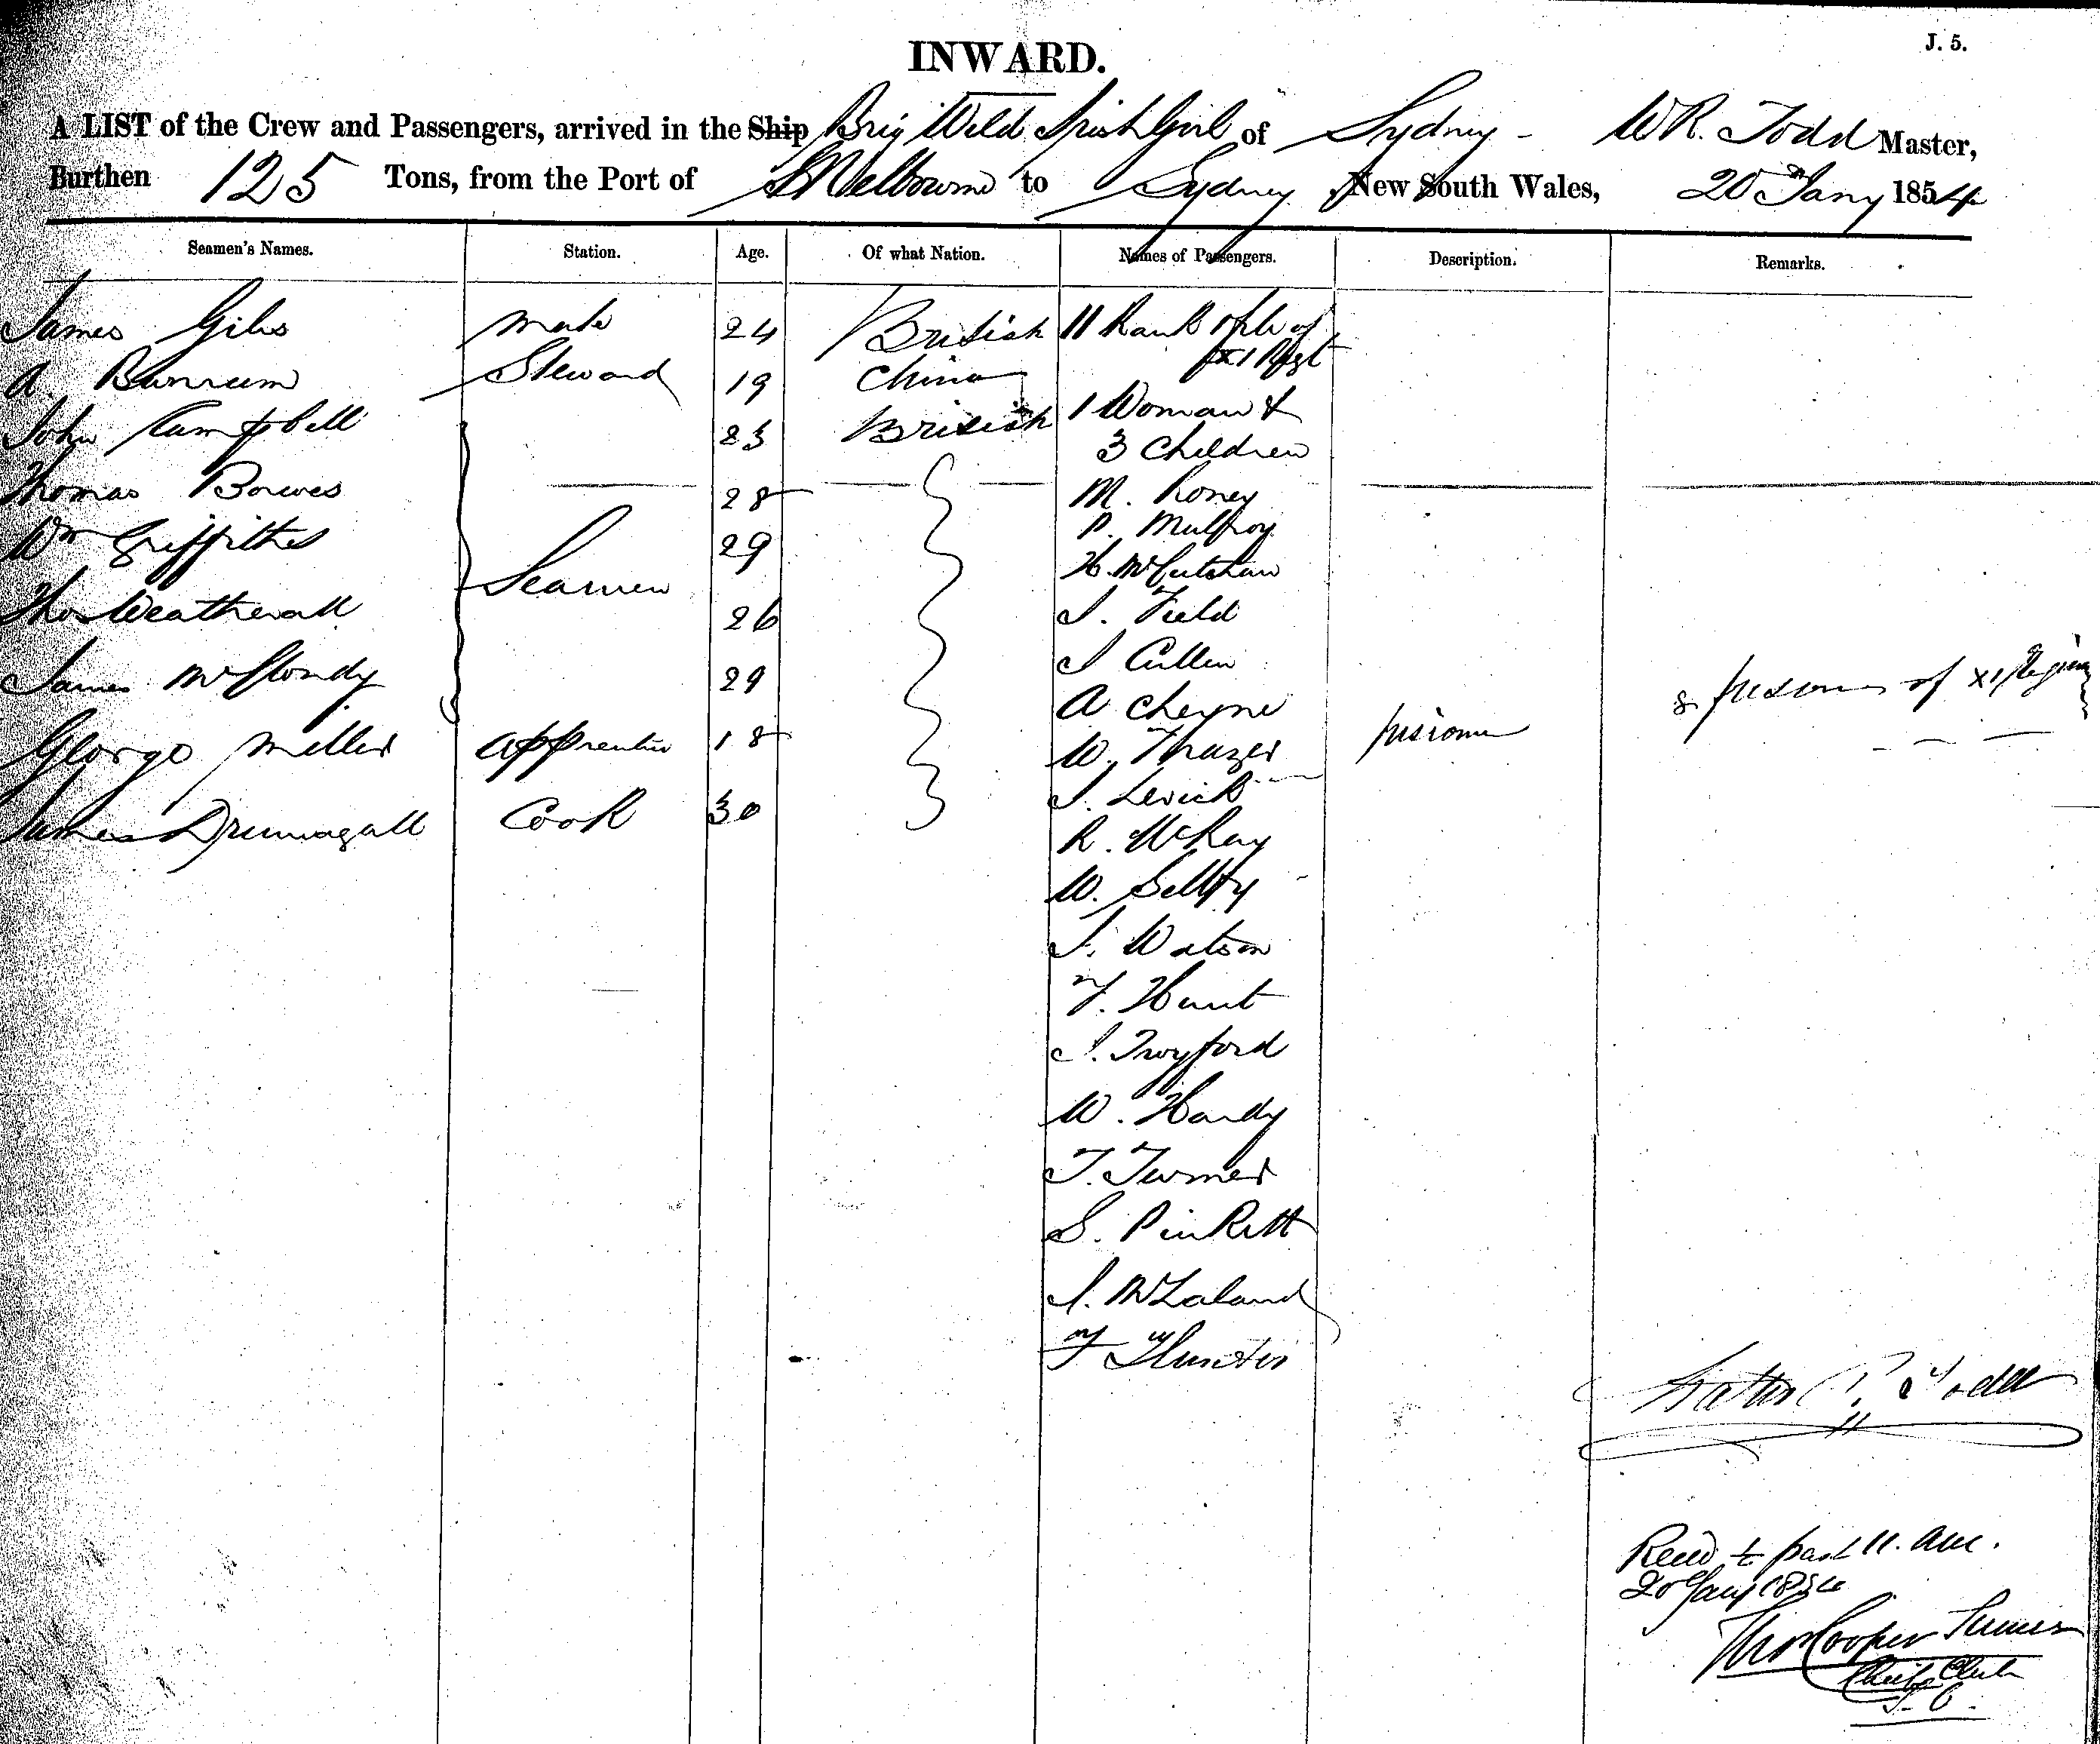 J. 5.
INWARD.
A LIST of the Crew and Passengers, arrived in the Ship Brig Wild Irish Girl of Sydney - W R. Todd Master,
Burthen 125 Tons, from the Port of Melbourne to Sydney New South Wales, 20 Jany 1854
Seamen's Names. Station. Age. Of what Nation. Names of Passengers. Description. Remarks.
James Giles mate 24 British 11 Rank & file of
XI Regt
A. Steward 19 China
1 Woman &
John Campbell 23 British
3 Children
Thomas Bowes 28 M. Roney
P. Mulfroy
Wm Griffiths 29 H. McCutchan
Seamen
Thos Weatherall 26 J. Field
J Cullen
James 29 of XI
A Cheyne
George Miller Apprentice 18 W. Frazer prisoner
J. Levick
James Cook 30 R. McKay
W. Selby
J. Watson
F. Hunt
J. Twyford
W. Hardy
T. Turner
S. Pinkett
J.
F Hunter
Todd
Recd ½ past 11. am.
20 Jany 1854
Thos Cooper
Chief Clerk